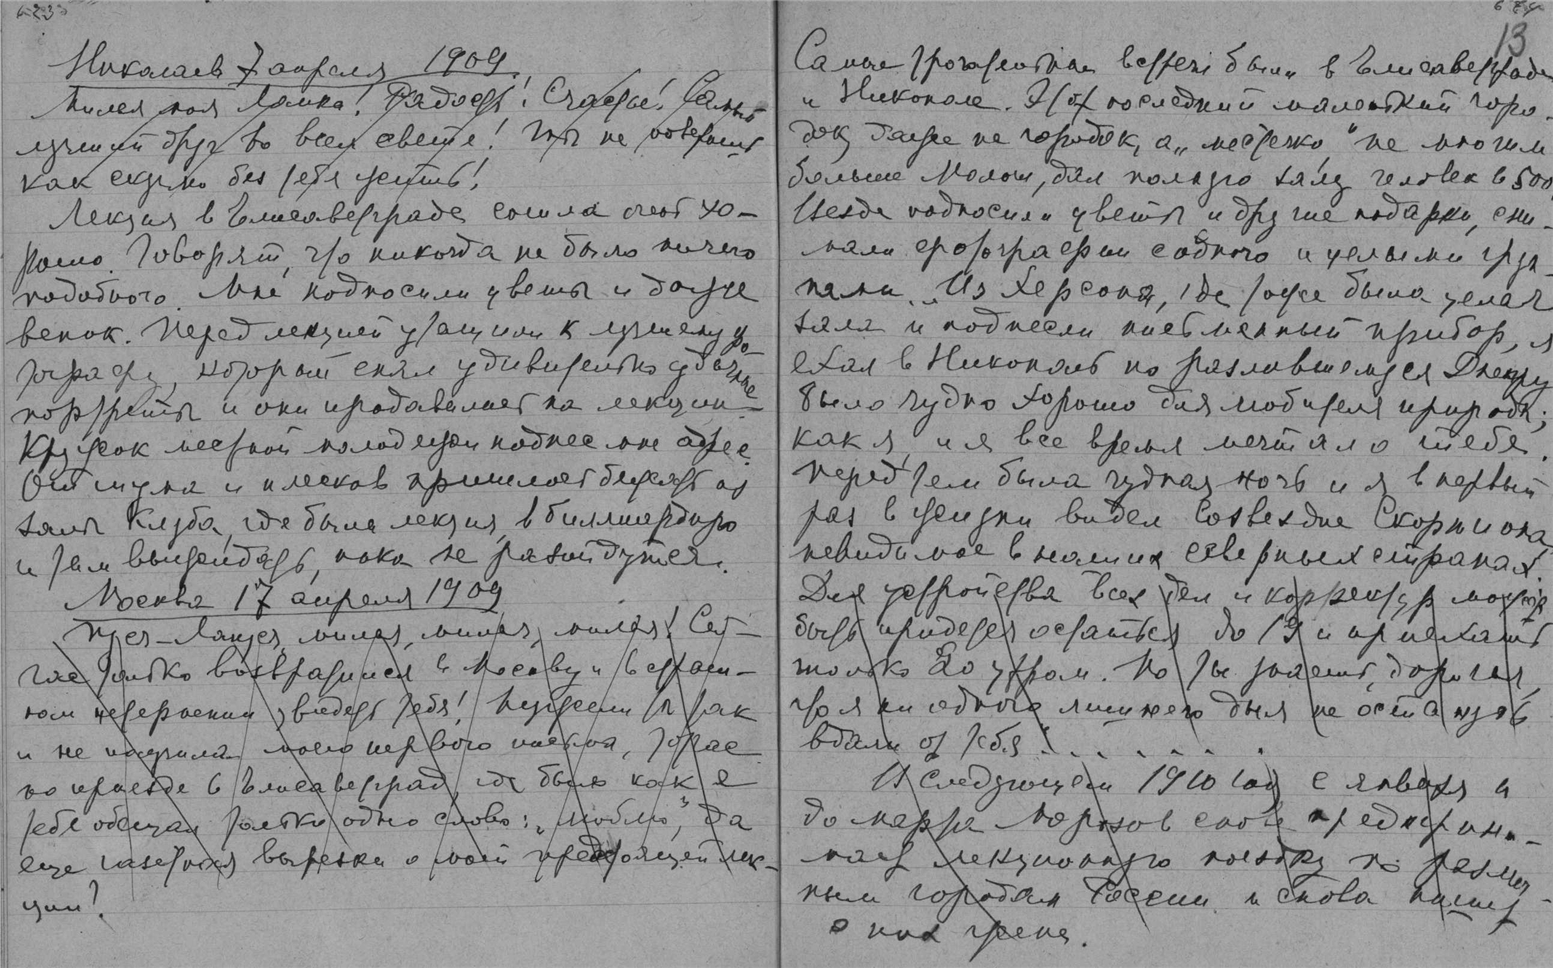 623
Николаев 7 апреля 1909
Милая моя Лялка! Радость! Счастье! Самый
лучший друг во всем свете! Ты не поверишь
как скучно без тебя жить!
Лекция в Елисаветграде сошла очень хо-
рошо. Говорят, что никогда не было ничего
подобного. Мне подносили цветы и даже
венок. Перед лекцией утащили к лучшему фо-
тографу, который снял удивительно удачные
портреты и они продавались на лекции.
Кружок местной молодежи поднес мне адрес.
От шума и плесков пришлось бежать из
залы клуба, где была лекция, в биллиардную
и там выжидать, пока не разойдутся.
Москва 17 апреля 1909
Ксея-Ляксея, милая, милая, милая! Сей-
час только возвратился в Москву и в страш-
ном нетерпении увидеть тебя! Неужели ты так
и не получила моего первого письма, тотчас
по приезде в Елисаветград, где было как я
тебе обещал только одно слово: „люблю", да
еще газетная вырезка о моей предстоящей лек-
ции?
624
13
Самые трогательные встречи были в Елисаветграде
и Никополе. Этот последний маленький горо-
док, даже не городок, а „местечко" не многим
больше Мологи, дал полную залу человек в 500
Везде подносили цветы и другие подарки, сни-
мали фотографии с одного и целыми груп-
пами. Из Херсона, где тоже была целая
зала и поднесли письменный прибор, я
ехал в Никополь по разлившемуся Днепру
было чудно хорошо для любителя природы,
как я, и я все время мечтал о тебе.
Перед тем была чудная ночь и я в первый
раз в жизни видел созвездие Скорпиона,
невидимое в наших северных странах.
Для устройства всех дел и корректур может
быть придется остаться до 19 и приехать
только 20 утром. Но ты знаешь, дорогая,
что я ни одного лишнего дня не останусь
вдали от тебя . . . . . . . .
В следующем 1910 году с января и
до марта Морозов снова предприни-
мает лекционную поездку по различ-
ным городам России и снова пишет
с них жене.